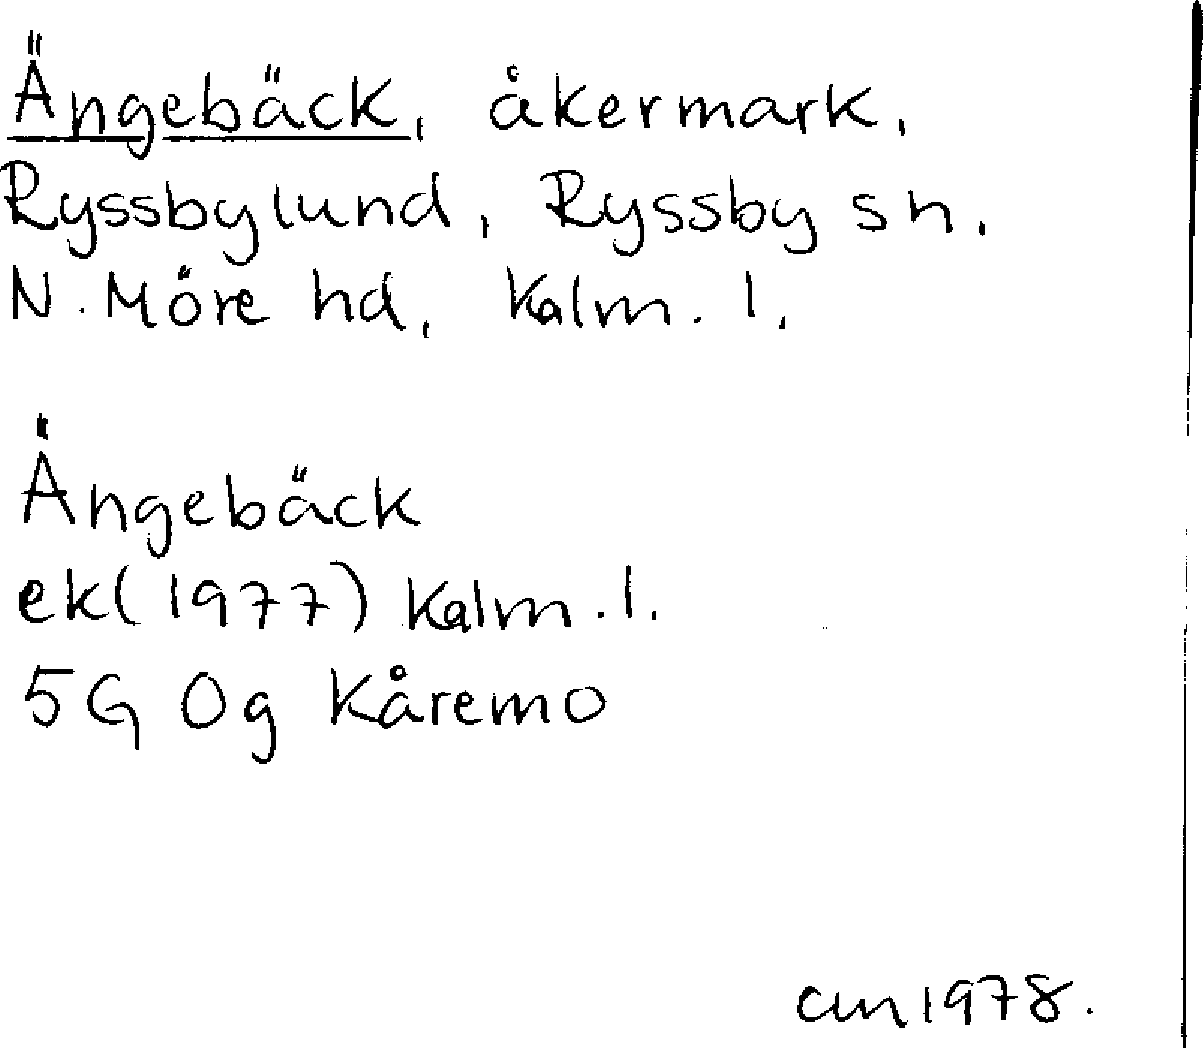 Ängebäck, åkermark,
Ryssbylund, Ryssby sn,
N. Möre hd, Kalm. l,
Ängebäck
ek(1977) Kalm. l.
5G 0g Kåremo
cm 1978.